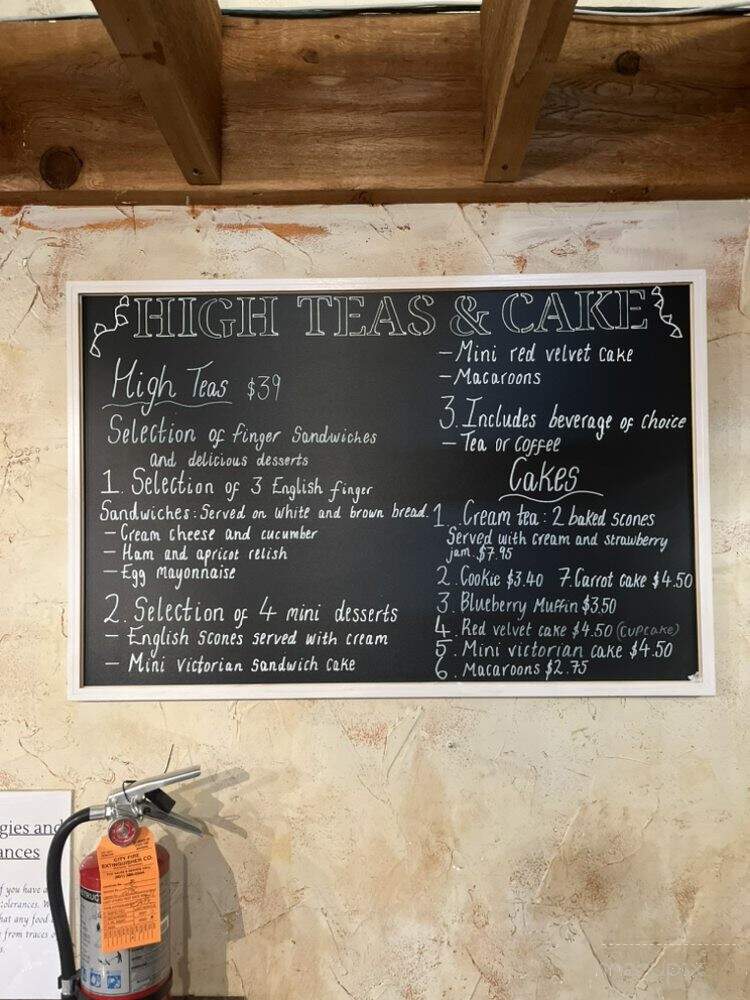 HIGH TEAS & CAKE
High Teas $39
Selection of finger Sandwiches
and delicious desserts
1. Selection of 3 English finger
Sandwiches: Served on white and brown bread.
- Cream cheese and cucumber
- Ham and apricot relish
- Egg Mayonnaise
2. Selection of 4 mini desserts
- English Scones served with cream
- Mini Victorian Sandwich cake
- Mini red velvet cake
- Macaroons
3. Includes beverage of choice
- Tea or coffee
Cakes
1. Cream tea: 2 baked scones
Served with cream and strawberry
jam. $7.95
2. Cookie $3.40 7. Carrot cake $4.50
3. Blueberry Muffin $3.50
4. Red velvet cake $4.50 (cupcake)
5. Mini victorian cake $4.50
6. Macaroons $2.75
gies and
ances
f you have a
tolerances. W
hat any food
from traces o
s.
CITY FIRE
EXTINGUISHER CO.